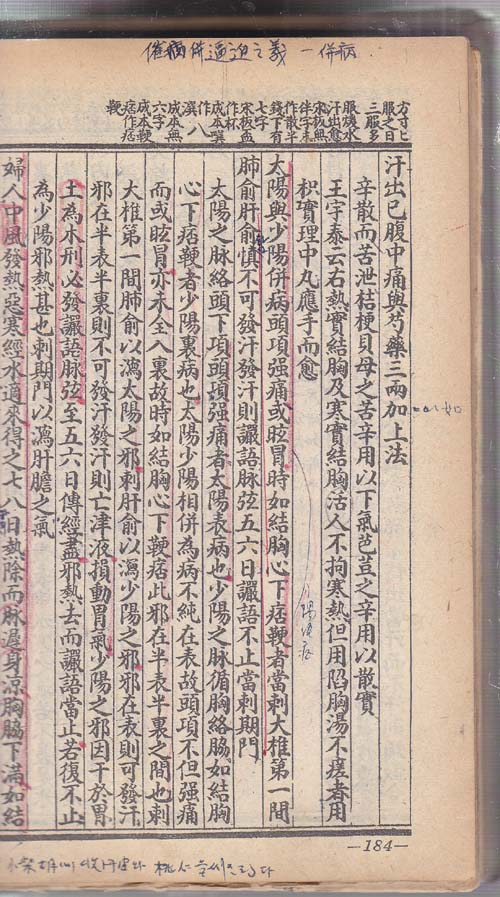 併病
方寸匕
服之日
三服多
服煖水
汗出愈
宋板無
作散半
錢下有
七字
宋板盃
作杯
成本𩆜
作
八
成本無
六字
成本鞕
痞作痞
鞕
汗出已腹中痛與芍藥三兩加上法
辛散而苦泄桔梗貝母之苦辛用以下氣芭豆之辛用以散實
王宇泰云右熱實結胸及寒實結胸活人不拘寒熱但用陷胸湯不瘥者用
枳實理中丸應手而愈
太陽與少陽併病頭項强痛或眩冒時如結胸心下痞鞕者當刺大椎第一間
肺俞肝俞慎不可發汗發汗則讝語脉弦五六日讝語不止當刺期門
太陽之脉絡頭下項頭項强痛者太陽表病也少陽之脉循胸絡脇如結胸
心下痞鞕者少陽裏病也太陽少陽相併為病不純在表故頭項不但强痛
而或眩冒亦未全入裏故時如結胸心下鞕痞此邪在半表半裏之間也刺
大椎第一間肺俞以瀉太陽之邪刺肝俞以瀉少陽之邪邪在表則可發汗
邪在半表半裏則不可發汗發汗則亡津液損動胃氣少陽之邪因干於胃
土為木刑必發讝語脉弦至五六日傳經盡邪熱去而讝語當止若復不止
為少陽邪熱甚也刺期門以瀉肝膽之氣
婦人中風發熱惡寒經水適來得之七八日熱除而脉遲身涼胸脇下滿如結
—184—